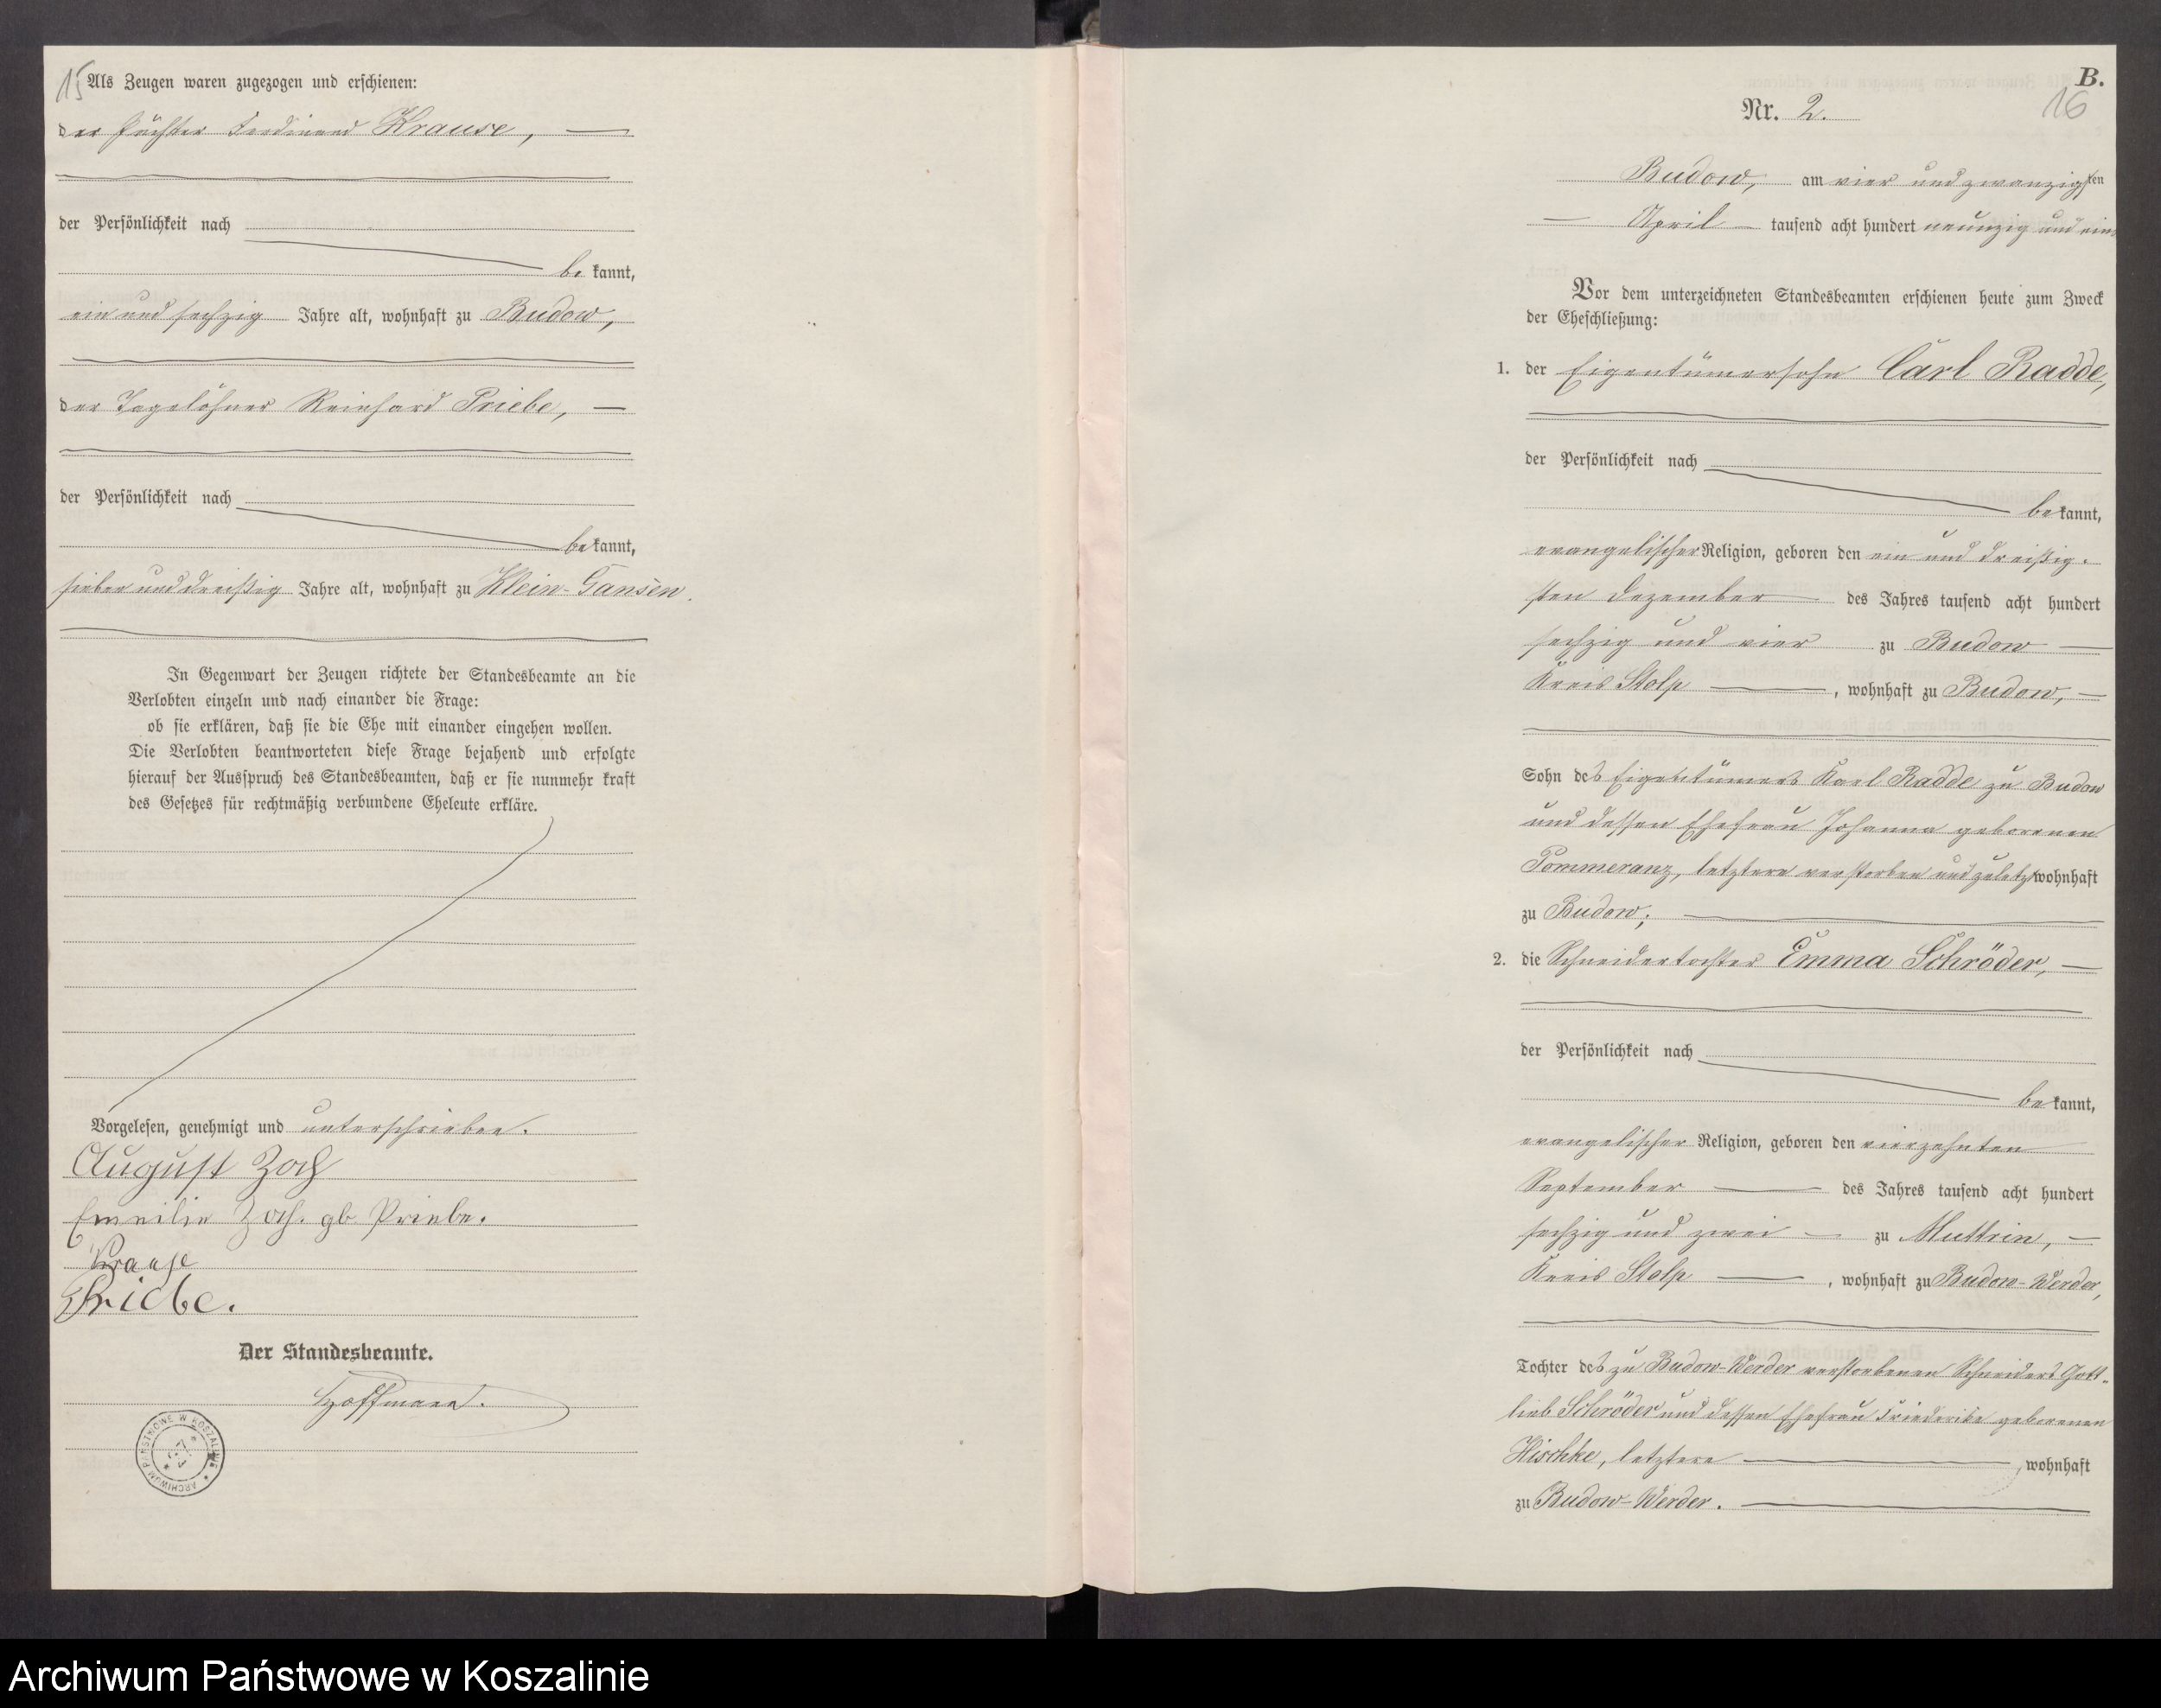 15
Als Zeugen waren zugezogen und erschienen:
der Pächter Ferdinand Krause,
der Persönlichkeit nach
bekannt,
ein und sechzig Jahre alt, wohnhaft zu Budow,
der Tagelöhner Reinhard Priebe,
der Persönlichkeit nach
bekannt,
sieben und dreißig Jahre alt, wohnhaft zu Klein-Gansen.
In Gegenwart der Zeugen richtete der Standesbeamte an die
Verlobten einzeln und nach einander die Frage:
ob sie erklären, daß sie die Ehe mit einander eingehen wollen.
Die Verlobten beantworteten diese Frage bejahend und erfolgte
hierauf der Ausspruch des Standesbeamten, daß er sie nunmehr kraft
des Gesetzes für rechtmäßig verbundene Eheleute erkläre.
Vorgelesen, genehmigt und unterschrieben.
August Zoch
Emilie Zoch. gb. Priebe.
Krause
Priebe.
Der Standesbeamte.
Hoffmann.
ARCHIWUM PAŃSTWOWE W KOSZALINIE
B.
16
Nr. 2.
Budow, am vier und zwanzigsten
April tausend acht hundert neunzig und ein
Vor dem unterzeichneten Standesbeamten erschienen heute zum Zweck
der Eheschließung:
1. der Eigentümersohn Carl Radde,
der Persönlichkeit nach
bekannt,
evangelischer Religion, geboren den ein und dreißig-
sten Dezember des Jahres tausend acht hundert
sechzig und vier zu Budow
Kreis Stolp, wohnhaft zu Budow,
Sohn des Eigentümers Karl Radde zu Budow
und dessen Ehefrau Johanna geborenen
Pommeranz, letztere verstorben und zuletzt wohnhaft
zu Budow;
2. die Schneidertochter Emma Schröder,
der Persönlichkeit nach
bekannt,
evangelischer Religion, geboren den vierzehnten
September des Jahres tausend acht hundert
sechzig und zwei zu Muttrin,
Kreis Stolp, wohnhaft zu Budow-Werder,
Tochter des zu Budow-Werder verstorbenen Schneiders Gott-
lieb Schröder und dessen Ehefrau Friederike geborenen
Hischke, letztere, wohnhaft
zu Budow-Werder.
Archiwum Państwowe w Koszalinie